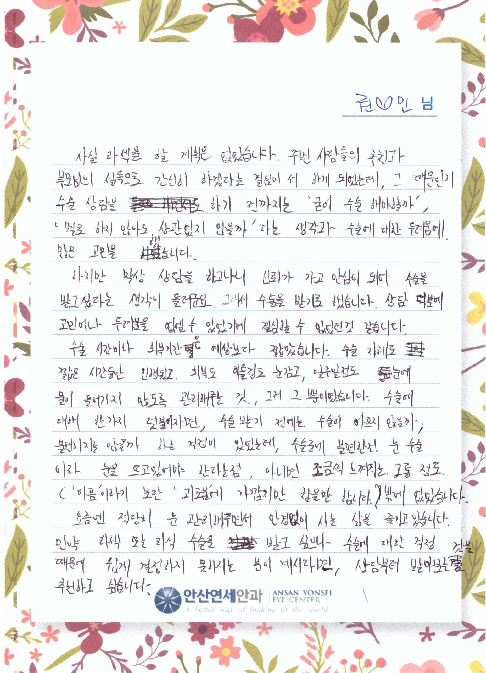 권♡민 님
사실 라섹을 할 계획은 없었습니다. 주변 사람들의 추천과
부모님의 설득으로 간신히 하겠다는 결심이 서 하게 되었는데, 그 때문인지
수술 상담을 하기 전까지는 '굳이 수술 해야할까',
'별로 하지 않아도 상관없지 않을까' 라는 생각과 수술에 대한 두려움에
많은 고민을 했습니다.
하지만 막상 상담을 하고나니 신뢰가 가고 안심이 되어 수술을
받고싶다는 생각이 그래서 수술을 받기로 했습니다. 상담 덕분에
고민이나 두려움을 없앨 수 있었기에 결심할 수 있었던것 같습니다.
수술 시간이나 회복기간은 예상보다 짧았습니다. 수술 자체도
짧은 시간동안 회복도 눈에
물이 들어가지 않도록 관리해준 것, 그저 그 뿐이었습니다. 수술에
대해 한가지 덧붙이자면, 수술 받기 전에는 수술이 아프지 않을까,
불편하지는 않을까 하는 걱정이 있었는데, 수술중에 불편한건 눈 수술
이라 눈을 뜨고있어야 한다는점, 아니면 조금씩 느껴지는 그을 정도
('아픔'이라기 보단 '괴로움'에 가깝지만 참을만 합니다.) 밖에 없었습니다.
요즘엔 적당히 눈 관리해주면서 안경없이 사는 삶을 즐기고 있습니다.
만약 라식 또는 라섹 수술을 받고 싶으나 수술에 대한 걱정
때문에 쉽게 결정하지 못하시는 분이 계시다면, 상담부터 받아보는것을
추천하고 싶습니다.
안산연세안과 ANSAN YONSEI
EYE CENTER
A better way of looking at the world